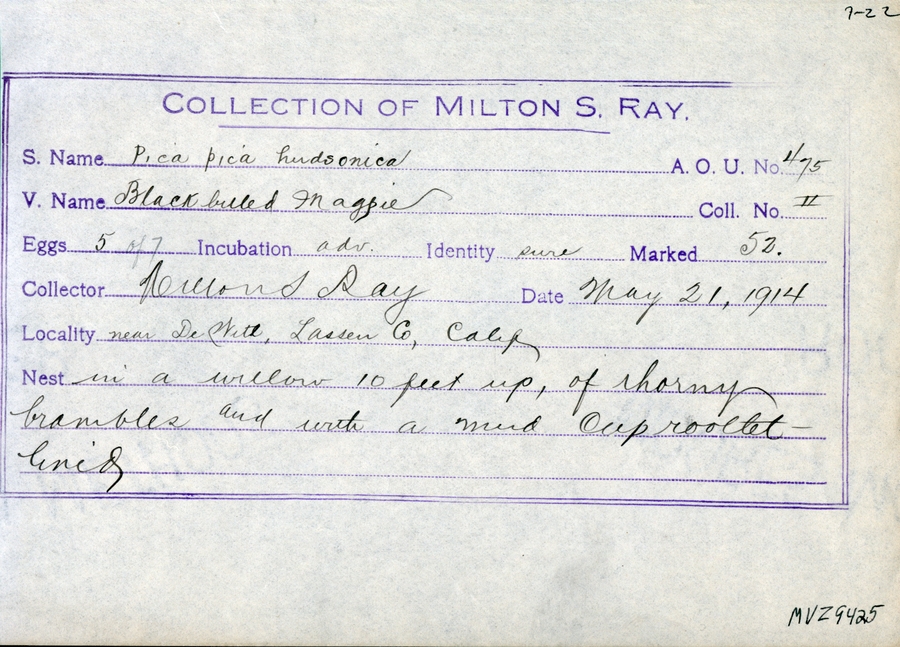 7-22
COLLECTION OF MILTON S. RAY.
S. Name Pica pica hudsonica A. O. U. No. 475
V. Name Black billed Magpie Coll. No. II
Eggs 5 of 7 Incubation adv. Identity sure Marked 52.
Collector Milton S Ray Date May 21, 1914
Locality near De Witt, Lassen Co, Calif
Nest in a willow 10 feet up, of thorny
brambles and with a mud Cup rootlet-
lined
MVZ9425